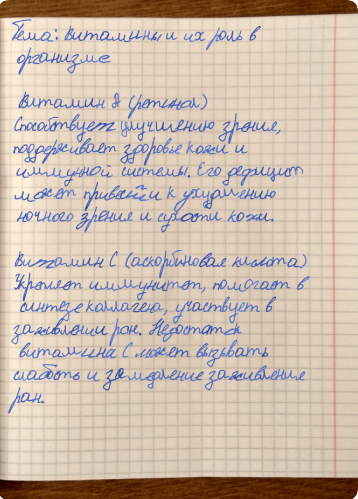 Тема: Витамины и их роль в
организме
Витамин А (ретинол)
Способствует улучшению зрения,
поддерживает здоровье кожи и
иммунной системы. Его дефицит
может привести к ухудшению
ночного зрения и сухости кожи.
Витамин С (аскорбиновая кислота)
Укрепляет иммунитет, помогает в
синтезе коллагена, участвует в
заживлении ран. Недостаток
витамина С может вызывать
слабость и замедление заживления
ран.